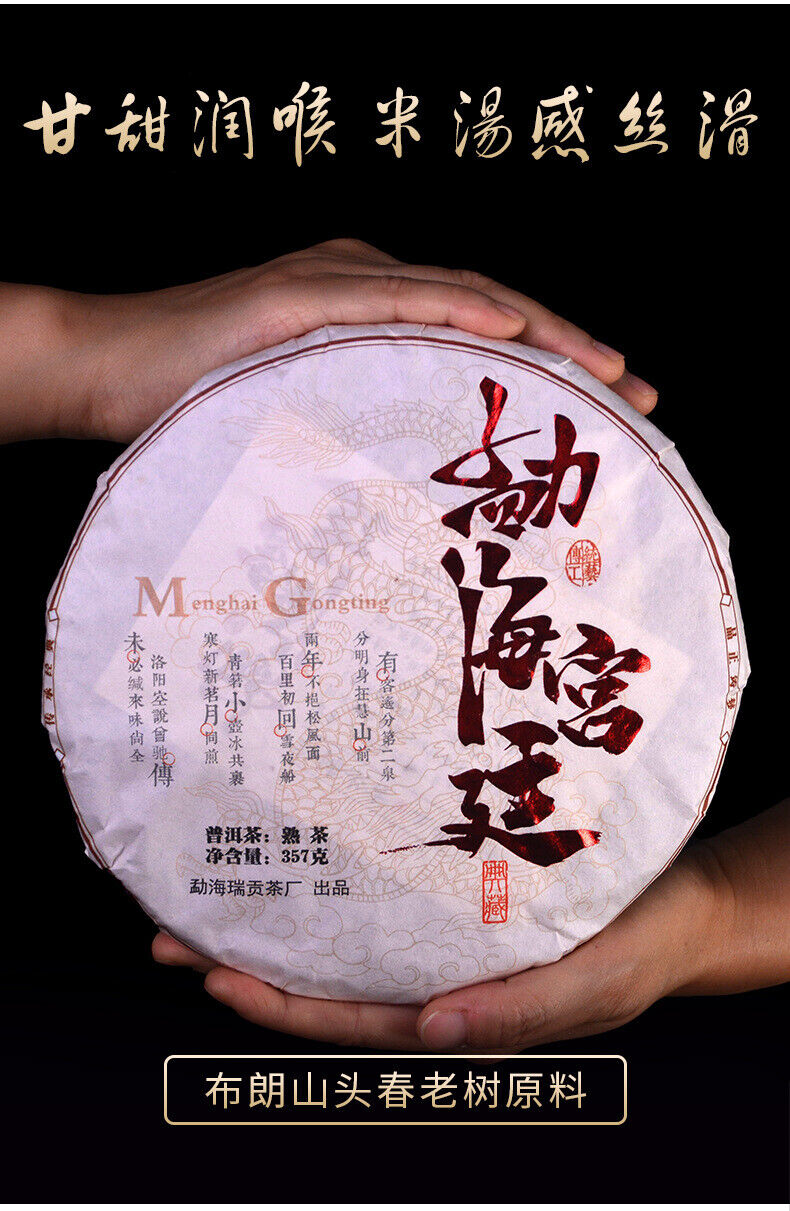 甘甜润喉 米湯感丝滑
勐海宮廷
典藏
Menghai Gongting
有客遙分第二泉
分明身在慧山前
兩年不挹松風面
百里初回雪夜船
青箬小壺冰共裹
寒灯新茗月同煎
洛阳空說曾馳傳
未必緘來味尚全
传承经典
普洱茶：熟 茶
净含量：357克
勐海瑞贡茶厂 出品
布朗山头春老树原料